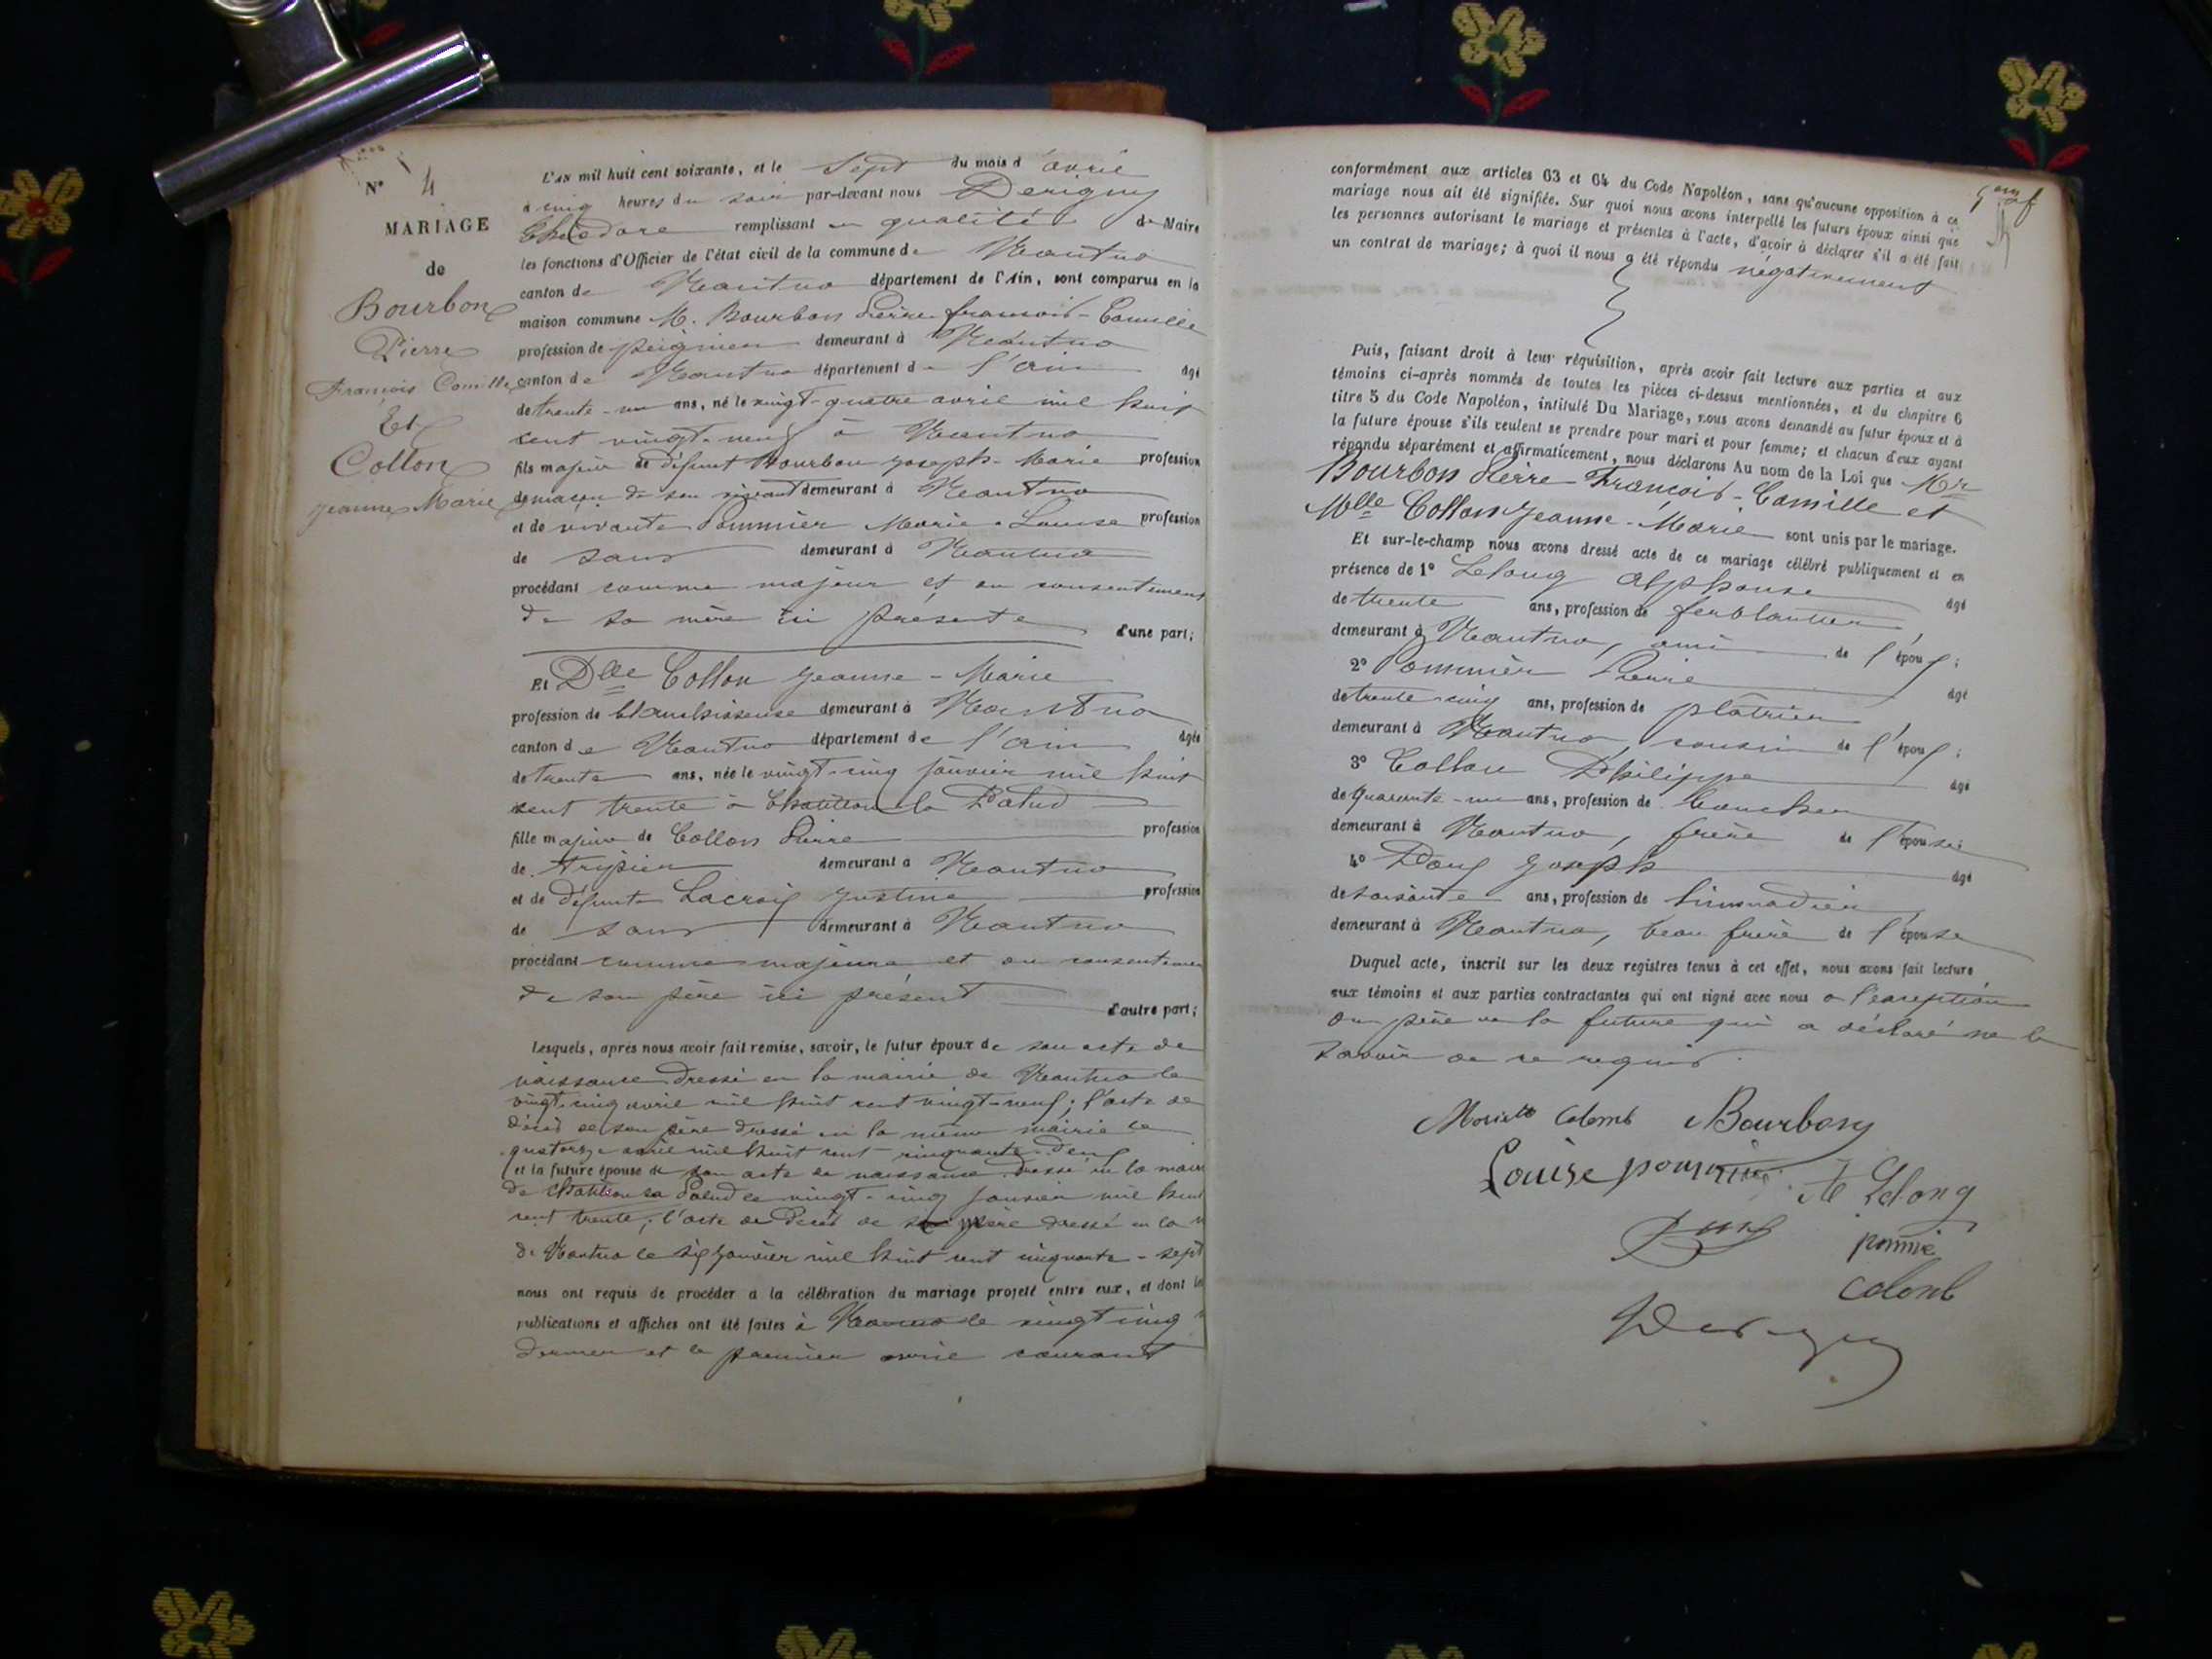 N° 4
MARIAGE
de
Bourbon
Pierre
François Camille
Et
Collon
Jeanne Marie
L'AN mil huit cent soixante, et le Sept du mois d'avril
à cinq heures du soir par-devant nous Derigny
Théodore remplissant en qualité de Maire
les fonctions d'Officier de l'état civil de la commune de Nantua
canton de Nantua département de l'Ain, sont comparus en la
maison commune M. Bourbon Pierre-françois-Camille
profession de peignier demeurant à Nantua
canton de Nantua département de l'ain âgé
de trente-un ans, né le vingt-quatre avril mil huit
cent vingt-neuf à Nantua
fils majeur de défunt Bourbon Joseph-Marie profession
de maçon de son vivant demeurant à Nantua
et de vivante Pommier Marie-Louise profession
de sans demeurant à Nantua
procédant comme majeur et au consentement
de sa mère ici présente d'une part;
Et Dlle Collon Jeanne-Marie
profession de blanchisseuse demeurant à Nantua
canton de Nantua département de l'ain âgée
de trente ans, née le vingt-cinq janvier mil huit
cent trente à Chatillon la Palud
fille majeure de Collon Pierre profession
de tripier demeurant à Nantua
et de défunte Lacroix Justine profession
de sans demeurant à Nantua
procédant comme majeure et au consentement
de son père ici présent d'autre part;
Lesquels, après nous avoir fait remise, savoir, le futur époux de son acte de
naissance dressé en la mairie de Nantua le
vingt-cinq avril mil huit cent vingt-neuf; l'acte de
décès de son père dressé en la même mairie le
quatorze avril mil huit cent cinquante-deux
et la future épouse de son acte de naissance dressé en la mairie
de Chatillon la Palud le vingt-cinq janvier mil huit
cent trente; l'acte de décès de sa mère dressé en la m
de Nantua le six janvier mil huit cent cinquante-sept
nous ont requis de procéder à la célébration du mariage projeté entre eux, et dont les
publications et affiches ont été faites à Nantua le vingt cinq
dernier et le premier avril courant
conformément aux articles 63 et 64 du Code Napoléon, sans qu'aucune opposition à ce
mariage nous ait été signifiée. Sur quoi nous avons interpellé les futurs époux ainsi que
les personnes autorisant le mariage et présentes à l'acte, d'avoir à déclarer s'il a été fait
un contrat de mariage; à quoi il nous a été répondu négativement
Puis, faisant droit à leur réquisition, après avoir fait lecture aux parties et aux
témoins ci-après nommés de toutes les pièces ci-dessus mentionnées, et du chapitre 6
titre 5 du Code Napoléon, intitulé Du Mariage, nous avons demandé au futur époux et à
la future épouse s'ils veulent se prendre pour mari et pour femme; et chacun d'eux ayant
répondu séparément et affirmativement, nous déclarons Au nom de la Loi que Mr
Bourbon Pierre-François-Camille et
Mlle Collon Jeanne-Marie sont unis par le mariage.
Et sur-le-champ nous avons dressé acte de ce mariage célébré publiquement et en
présence de 1° Lelong Alphonse âgé
de trente ans, profession de ferblantier
demeurant à Nantua, ami de l'époux;
2° Pommier Pierre âgé
de trente-cinq ans, profession de plâtrier
demeurant à Nantua, cousin de l'époux;
3° Collon Philippe âgé
de quarante-un ans, profession de boucher
demeurant à Nantua, frère de l'épouse
4° Joseph âgé
de soixante ans, profession de limonadier
demeurant à Nantua, beau frère de l'épouse
Duquel acte, inscrit sur les deux registres tenus à cet effet, nous avons fait lecture
aux témoins et aux parties contractantes qui ont signé avec nous à l'exception
du père de la future qui a déclaré ne le
savoir de ce requis.
Mariette Colomb Bourbon
Louise pommier A Lelong
pomié
Colonb
Derigny